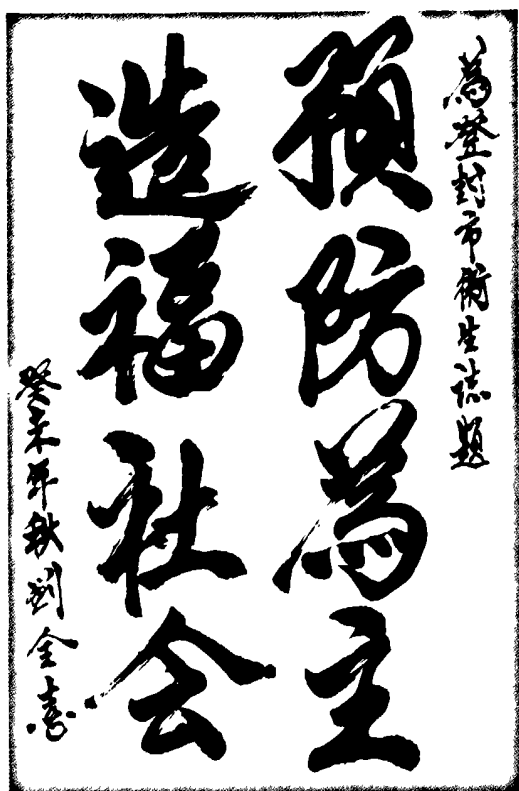 為登封市衛生誌題
預防為主
造福社会
癸未年秋劉金志